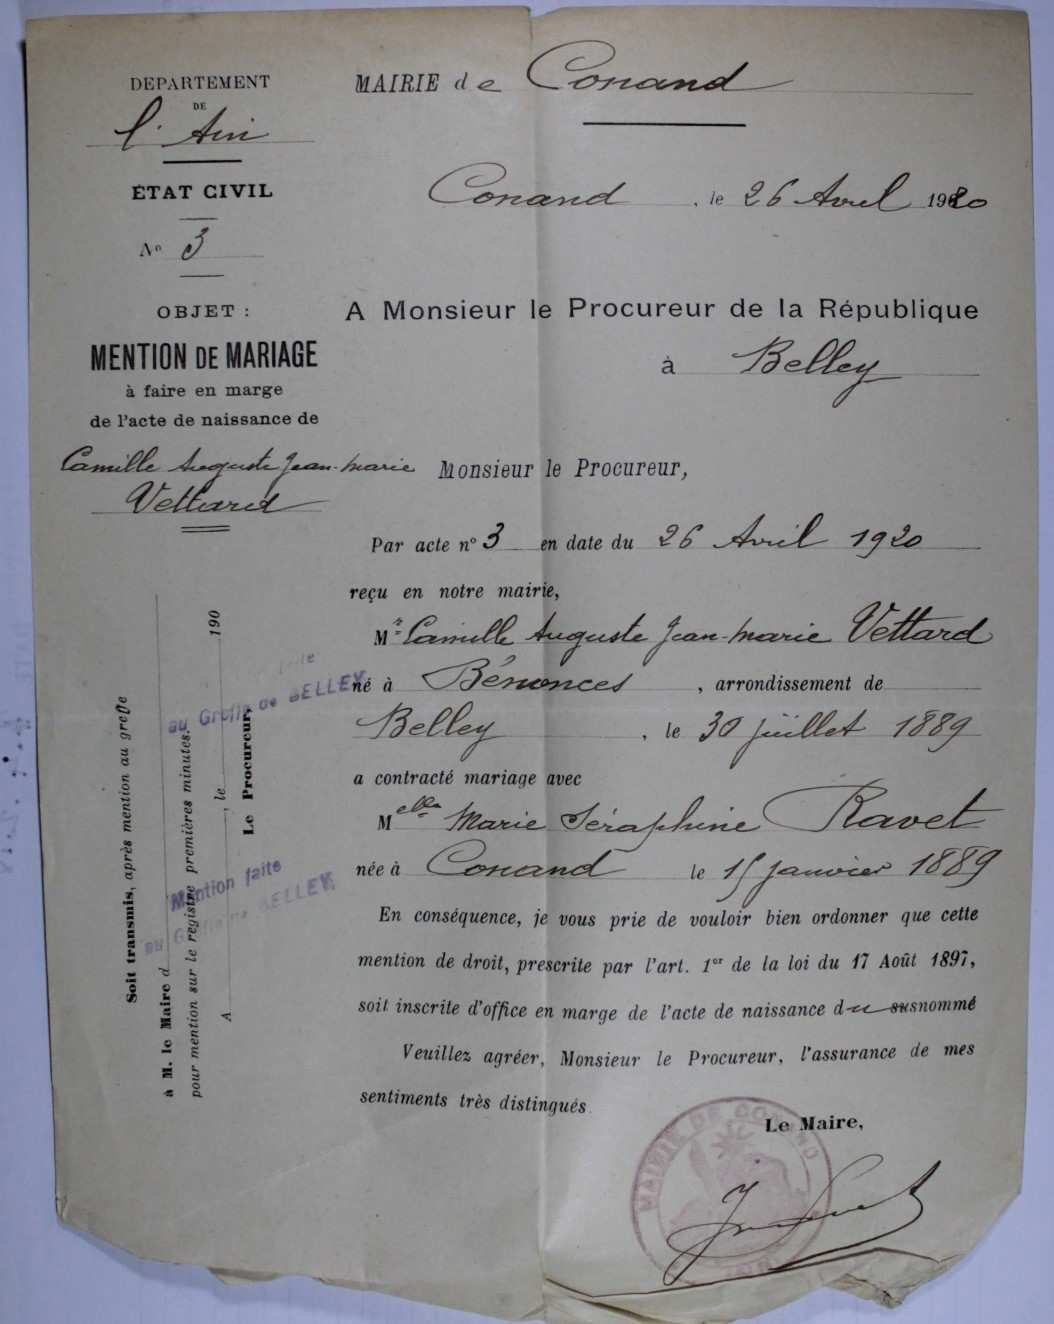 DEPARTEMENT
DE
l'Ain
ÉTAT CIVIL
No 3
OBJET :
MENTION DE MARIAGE
à faire en marge
de l'acte de naissance de
Camille Auguste Jean-Marie
Vettard
MAIRIE de Conand
Conand, le 26 Avril 1920
A Monsieur le Procureur de la République
à Belley
Monsieur le Procureur,
Par acte no 3 en date du 26 Avril 1920
reçu en notre mairie,
Mr Camille Auguste Jean-Marie Vettard
né à Bénonces, arrondissement de
Belley, le 30 juillet 1889
a contracté mariage avec
Melle Marie Séraphine Ravet
née à Conand le 15 janvier 1889
En conséquence, je vous prie de vouloir bien ordonner que cette
mention de droit, prescrite par l'art. 1er de la loi du 17 Août 1897,
soit inscrite d'office en marge de l'acte de naissance du susnommé
Veuillez agréer, Monsieur le Procureur, l'assurance de mes
sentiments très distingués.
Le Maire,
MAIRIE DE CONAND
Soit transmis, après mention au greffe
à M. le Maire d
pour mention sur le registre premières minutes.
A , le 190
Le Procureur,
faite
au Greffe de BELLEY
Mention faite
au Greffe de BELLEY